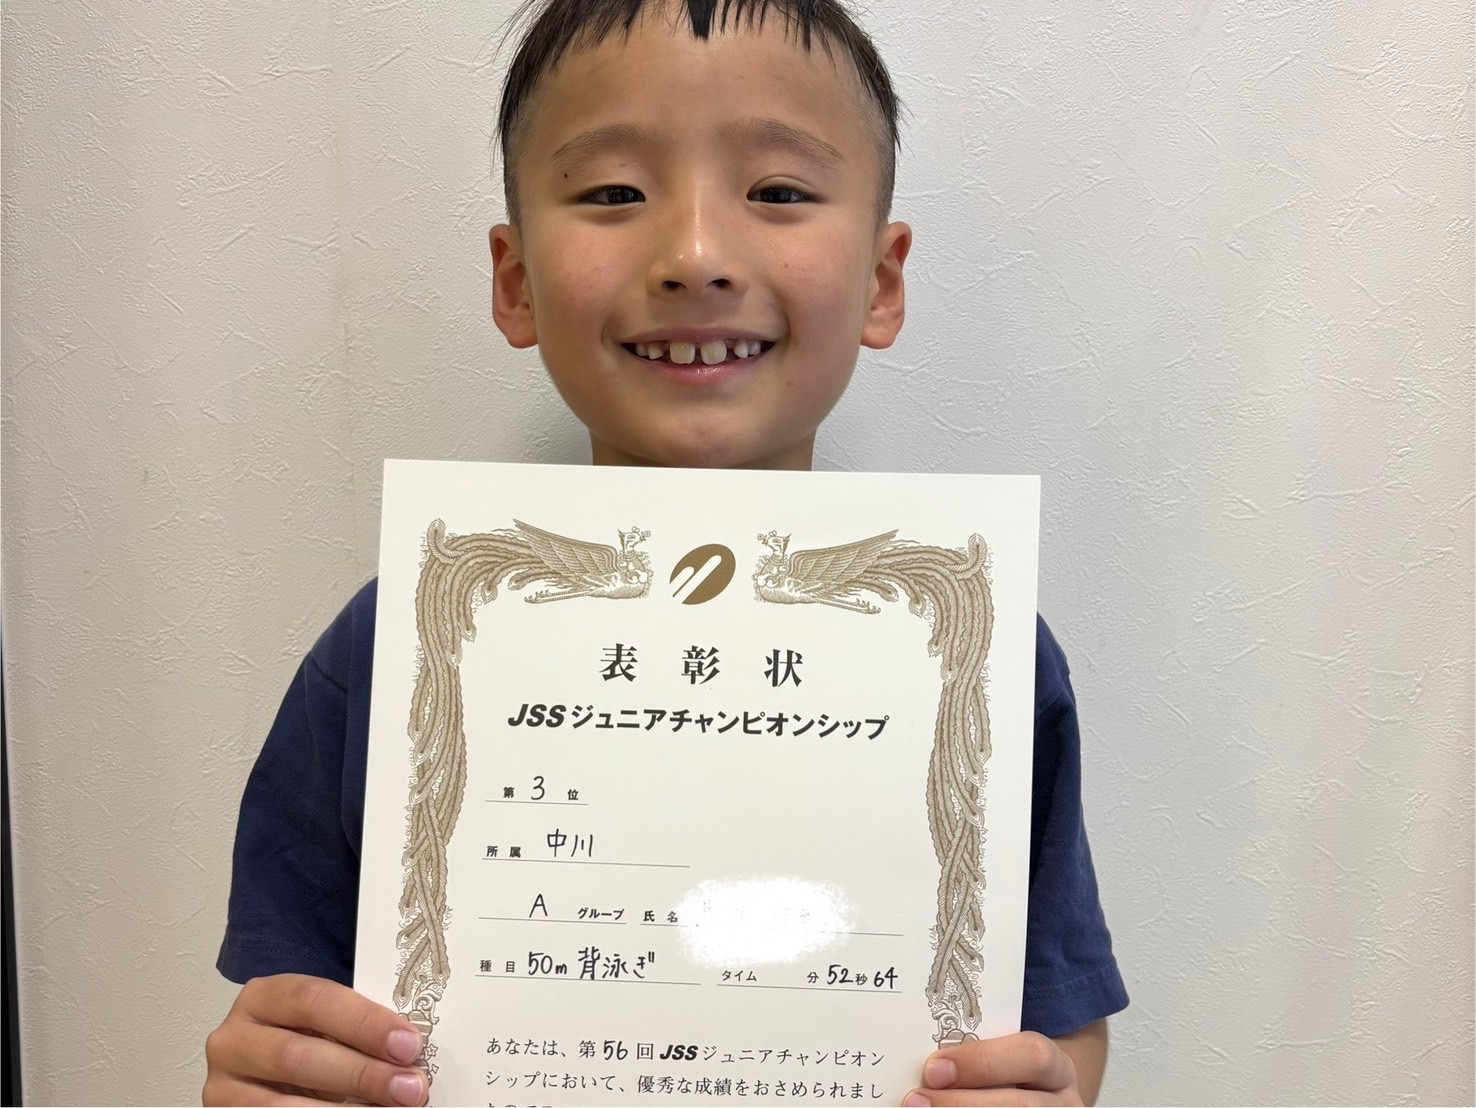 表彰状
JSSジュニアチャンピオンシップ
第 3 位
所属 中川
A グループ 氏名
種目 50m 背泳ぎ タイム 分 52 秒 64
あなたは、第 56 回 JSSジュニアチャンピオン
シップにおいて、優秀な成績をおさめられまし